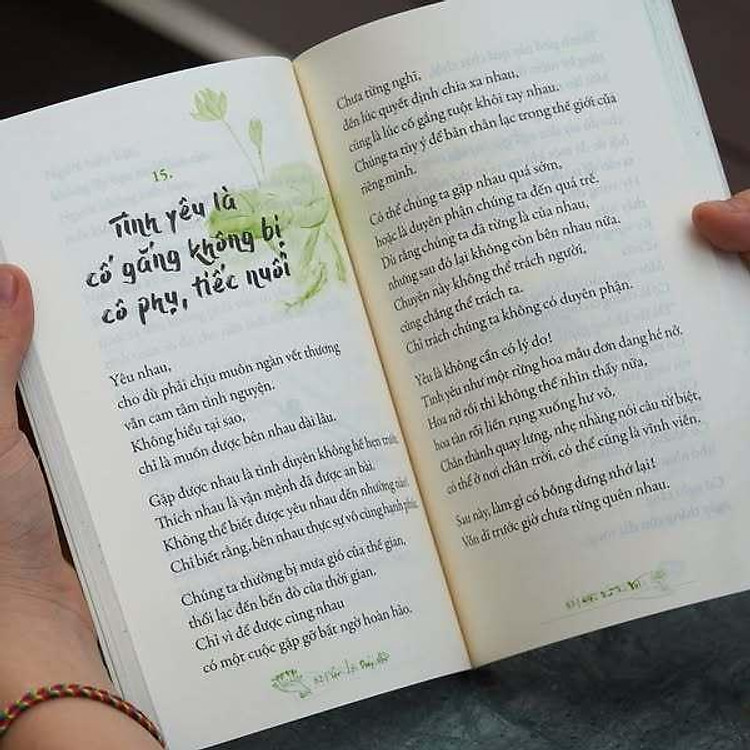 15.
Tình yêu là
cố gắng không bị
cô phụ, tiếc nuối
Yêu nhau,
cho dù phải chịu muôn ngàn vết thương
vẫn cam tâm tình nguyện.
Không hiểu tại sao,
chỉ là muốn được bên nhau dài lâu.
Gặp được nhau là tình duyên không hề hẹn trước
Thích nhau là vận mệnh đã được an bài.
Không thể biết được yêu nhau đến nhường nào!
Chỉ biết rằng, bên nhau thực sự vô cùng hạnh phúc
Chúng ta thường bị mưa gió của thế gian,
thổi lạc đến bến dò của thời gian.
Chỉ vì để được cùng nhau
có một cuộc gặp gỡ bất ngờ hoàn hảo.
Chưa từng nghĩ,
đến lúc quyết định chia xa nhau,
cũng là lúc cố gắng tuột khỏi tay nhau.
Chúng ta tùy ý để bản thân lạc trong thế giới của
riêng mình.
Có thể chúng ta gặp nhau quá sớm,
hoặc là duyên phận chúng ta đến quá trễ.
Dù rằng chúng ta đã từng là của nhau,
nhưng sau đó lại không còn bên nhau nữa.
Chuyện này không thể trách người,
cũng chẳng thể trách ta.
Chỉ trách chúng ta không có duyên phận.
Yêu là không cần có lý do!
Tình yêu như một rừng hoa mẫu đơn đang hé nở.
Hoa nở rồi thì không thể nhìn thấy nữa,
hoa tàn rồi liền rụng xuống hư vô,
Chân thành quay lưng, nhẹ nhàng nói câu từ biệt,
có thể ở nơi chân trời, có thể cũng là vĩnh viễn.
Sau này, làm gì có bỗng dưng nhớ lại!
Vốn dĩ trước giờ chưa từng quên nhau.